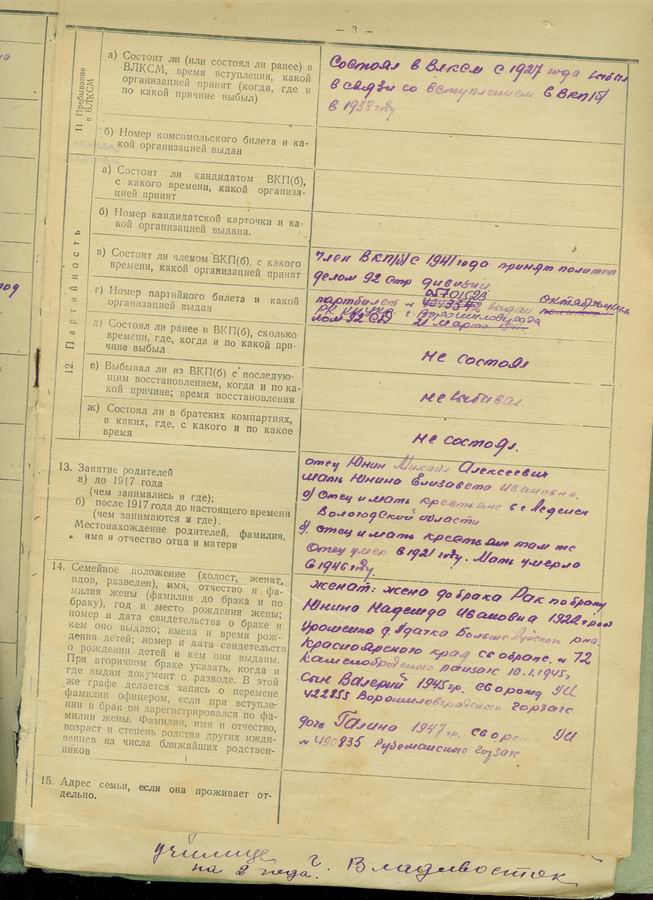 — 3 —
11. Пребывание в ВЛКСМ
а) Состоит ли (или состоял ли ранее) в
ВЛКСМ, время вступления, какой
организацией принят (когда, где и
по какой причине выбыл)
Состоял в ВЛКСМ с 1927 года выбыл
в связи со вступлением в ВКП(б)
в 1938 году
б) Номер комсомольского билета и ка-
кой организацией выдан
12. Партийность
а) Состоит ли кандидатом ВКП(б),
с какого времени, какой организа-
цией принят
б) Номер кандидатской карточки и ка-
кой организацией выдана.
в) Состоит ли членом ВКП(б), с какого
времени, какой организацией принят
член ВКП(б) с 1941 года принят полит
делом 92 стр дивизии
г) Номер партийного билета и какой
организацией выдан
05701523
партбилет № выдан октябрьским
РК г. Ворошиловграда
лом 92 СД 21 марта
д) Состоял ли ранее в ВКП(б), сколько
времени, где, когда и по какой при-
чине выбыл
не состоял
е) Выбывал ли из ВКП(б) с последую-
щим восстановлением, когда и по ка-
кой причине; время восстановления
не выбывал
ж) Состоял ли в братских компартиях,
в каких, где, с какого и по какое
время
не состоял.
13. Занятие родителей
а) до 1917 года
(чем занимались и где);
б) после 1917 года до настоящего времени
(чем занимаются и где).
Местонахождение родителей, фамилия,
имя и отчество отца и матери
отец Юнин Михаил Алексеевич
мать Юнина Елизавета Ивановна.
а) отец и мать крестьяне в с
Вологодской области
б) отец и мать крестьяне там же
Отец умер в 1921 году. Мать умерла
в 1946 году.
14. Семейное положение (холост, женат,
вдов, разведен), имя, отчество и фа-
милия жены (фамилия до брака и по
браку), год и место рождения жены;
номер и дата свидетельства о браке и
кем оно выдано; имена и время рож-
дения детей; номер и дата свидетельств
о рождении детей и кем они выданы.
При вторичном браке указать, когда и
где выдан документ о разводе. В этой
же графе делается запись о перемене
фамилии офицером, если при вступле-
нии в брак он зарегистрировался по фа-
милии жены. Фамилия, имя и отчество,
возраст и степень родства других ижди-
венцев из числа ближайших родствен-
ников
женат: жена до брака Рак по браку
Юнина Надежда Ивановна 1922 г рож
д. Больше р-на.
Красноярского край св о браке. № 72
Каменобродского райзагс 10.1.1945,
Сын Валерий 1945 гр. св о рожд УИ
422855 Ворошиловградского горзагс
дочь Галина 1947 гр. св о рожд УИ
№ 490835 Рубежанского горзагс
15. Адрес семьи, если она проживает от-
дельно.
училище г. Владивосток
на 2 года.